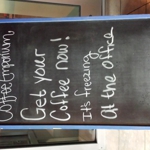 Coffee Emporium
Get your
Coffee now!
It's freezing
At the office